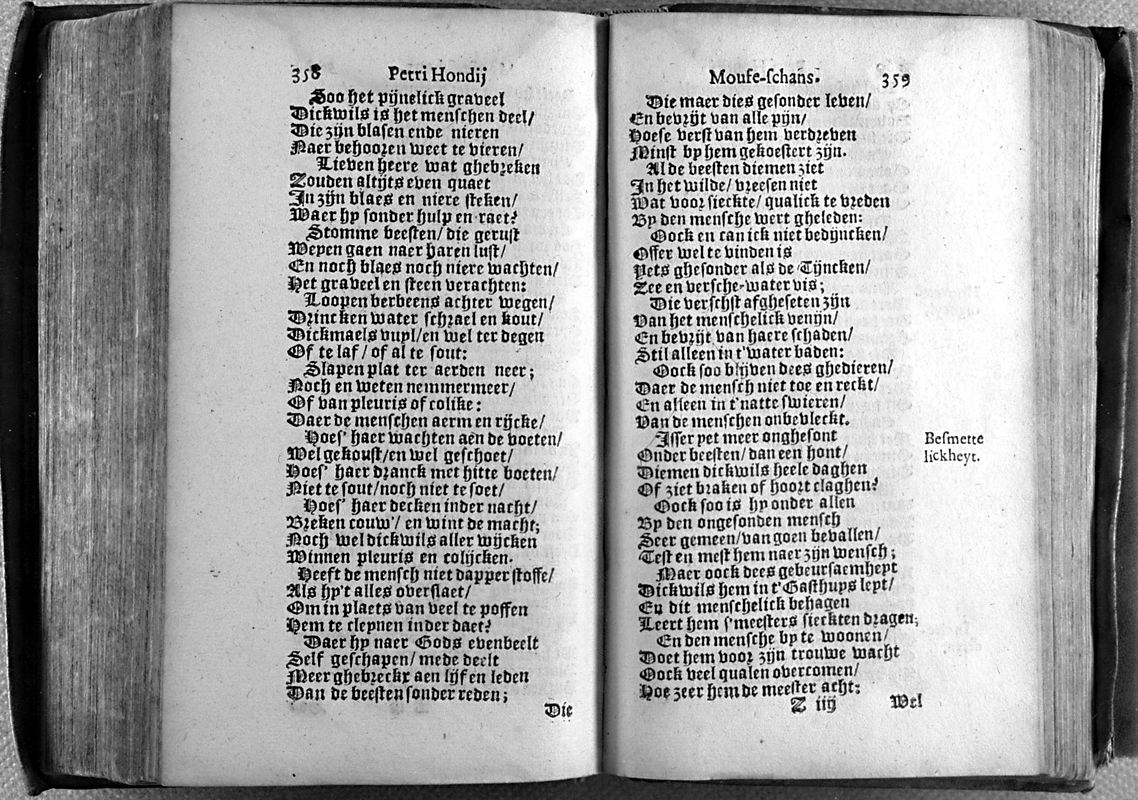 358 Petri Hondij
Soo het pijnelick graveel
Dickwils is het menschen deel/
Die zijn blasen ende nieren
Naer behooren weet te vieren/
Lieven heere wat ghebreken
Zouden altijts even quaet
In zijn blaes en niere steken/
Waer hy sonder hulp en raet?
Stomme beesten/ die gerust
Weyen gaen naer haren lust/
En noch blaes noch niere wachten/
Het graveel en steen verachten:
Loopen berbeens achter wegen/
Drincken water schrael en kout/
Dickmaels vuyl/en wel ter degen
Of te laf/ of al te sout:
Slapen plat ter aerden neer;
Noch en weten nemmermeer/
Of van pleuris of colike:
Daer de menschen aerm en rijcke/
Hoes' haer wachten aen de voeten/
Wel gekoust/en wel geschoet/
Hoes' haer dranck met hitte boeten/
Niet te sout/noch niet te soet/
Hoes' haer decken inder nacht/
Breken couw'/ en wint de macht;
Noch wel dickwils aller wijcken
Winnen pleuris en colijcken.
Heeft de mensch niet dapper stoffe/
Als hy't alles overslaet/
Om in plaets van veel te poffen
Hem te cleynen inder daet?
Daer hy naer Gods evenbeelt
Self geschapen/ mede deelt
Meer ghebreckx aen lijf en leden
Dan de beesten sonder reden;
Die
Mouse-schans. 359
Die maer dies gesonder leven/
En bevrijt van alle pijn/
Hoese verst van hem verdreven
Minst by hem gekoestert zijn.
Al de beesten diemen ziet
In het wilde/ vreesen niet
Wat voor sieckte/ qualick te vreden
By den mensche wert gheleden:
Oock en can ick niet bedijncken/
Offer wel te vinden is
Yets ghesonder als de Tijncken/
Zee en versche-water vis;
Die verschst afgheseten zijn
Van het menschelick venijn/
En bevrijt van haere schaden/
Stil alleen in t'water baden:
Oock soo blijven dees ghedieren/
Daer de mensch niet toe en reckt/
En alleen in t'natte swieren/
Van de menschen onbevleckt.
Isser yet meer onghesont
Onder beesten/ dan een hont/
Diemen dickwils heele daghen
Of ziet braken of hoort claghen?
Oock soo is hy onder allen
By den ongesonden mensch
Seer gemeen/van goen bevallen/
Test en mest hem naer zijn wensch;
Maer oock dees gebeursaemheyt
Dickwils hem in t'Gasthuys leyt/
En dit menschelick behagen
Leert hem s'meesters sieckten dragen;
En den mensche by te woonen/
Doet hem voor zijn trouwe wacht
Oock veel qualen overcomen/
Hoe zeer hem de meester acht:
Z iij Wel
Besmette
lickheyt.